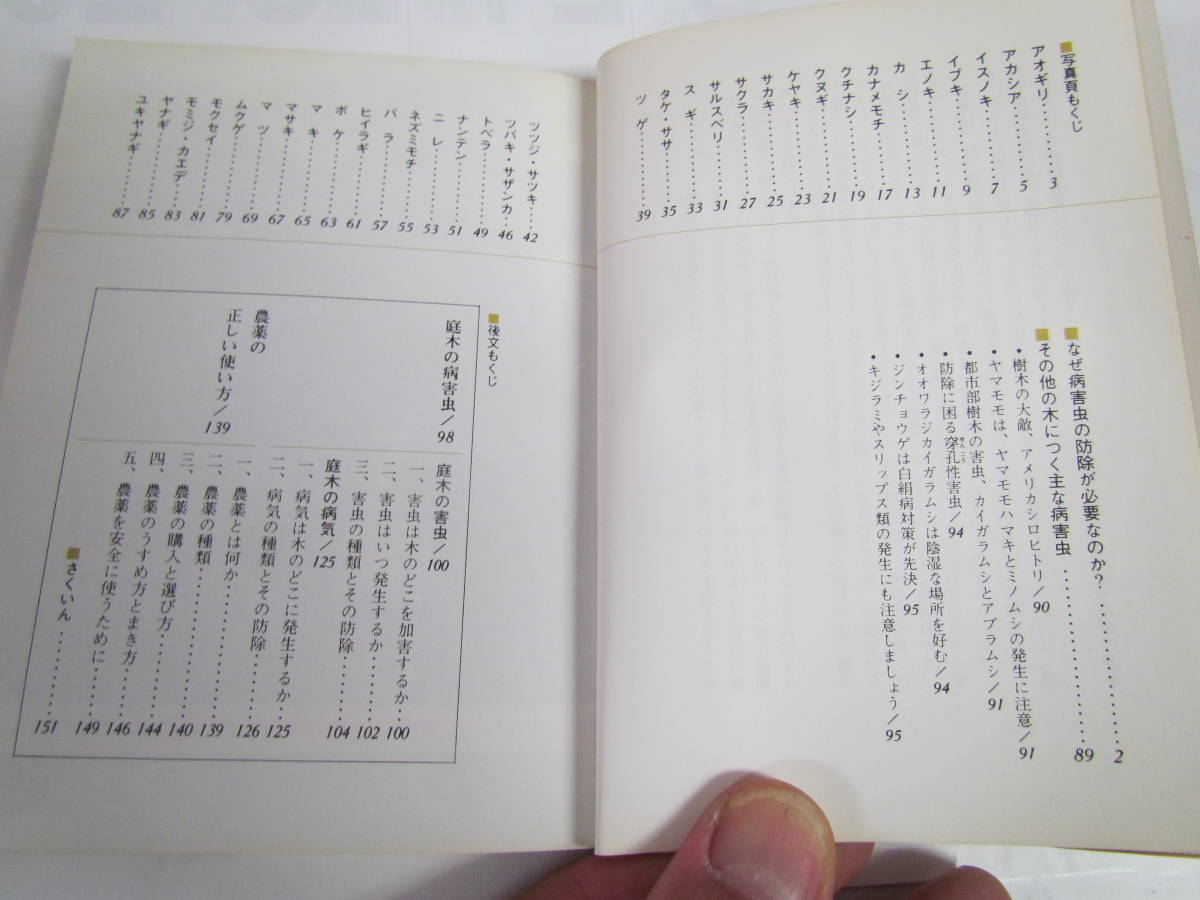 ■写真頁もくじ
アオギリ………3
アカシア………5
イスノキ………7
イブキ………9
エノキ………11
カシ………13
カナメモチ………17
クチナシ………19
クヌギ………21
ケヤキ………23
サカキ………25
サクラ………27
サルスベリ………31
スギ………33
タケ・ササ………35
ツゲ………39
■なぜ病害虫の防除が必要なのか?………2
■その他の木につく主な病害虫………89
・樹木の大敵、アメリカシロヒトリ/90
・ヤマモモは、ヤマモモハマキとミノムシの発生に注意/91
・都市部樹木の害虫、カイガラムシとアブラムシ/91
・防除に困る穿孔性害虫/94
せんこう
・オオワラジカイガラムシは陰湿な場所を好む/94
・ジンチョウゲは白絹病対策が先決/95
・キジラミやスリップス類の発生にも注意しましょう/95
ツツジ・サツキ………42
ツバキ・サザンカ………46
トベラ………49
ナンテン………51
ニレ………53
ネズミモチ………55
バラ………57
ヒイラギ………61
ボケ………63
マキ………65
マサキ………67
マツ………69
ムクゲ………79
モクセイ………81
モミジ・カエデ………83
ヤナギ………85
ユキヤナギ………87
■後文もくじ
庭木の病害虫/98
庭木の害虫/100
一、害虫は木のどこを加害するか………100
二、害虫はいつ発生するか………102
三、害虫の種類とその防除………104
庭木の病気/125
一、病気は木のどこに発生するか………125
二、病気の種類とその防除………126
農薬の
正しい使い方/139
一、農薬とは何か………139
二、農薬の種類………140
三、農薬の購入と選び方………144
四、農薬のうすめ方とまき方………146
五、農薬を安全に使うために………149
■さくいん………151